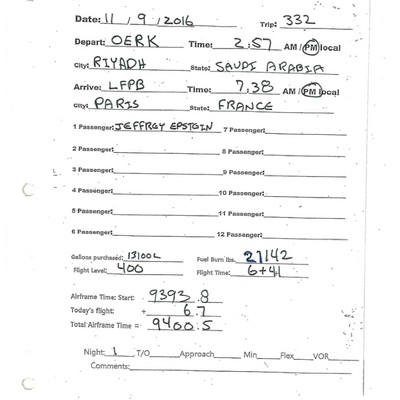 Date: 11/9/2016 Trip: 332
Depart: OERK Time: 2:57 AM / PM local
City: RIYADH State: SAUDI ARABIA
Arrive: LFPB Time: 7:38 AM / PM local
City: PARIS State: FRANCE
1 Passenger: JEFFREY EPSTEIN 7 Passenger:
2 Passenger: 8 Passenger:
3 Passenger: 9 Passenger:
4 Passenger: 10 Passenger:
5 Passenger: 11 Passenger:
6 Passenger: 12 Passenger:
Gallons purchased: 13100L Fuel Burn lbs. 27142
Flight Level: 400 Flight Time: 6+41
Airframe Time: Start: 9393.8
Today's flight: + 6.7
Total Airframe Time = 9400.5
Night: 1, T/O Approach Min Flex VOR
Comments: